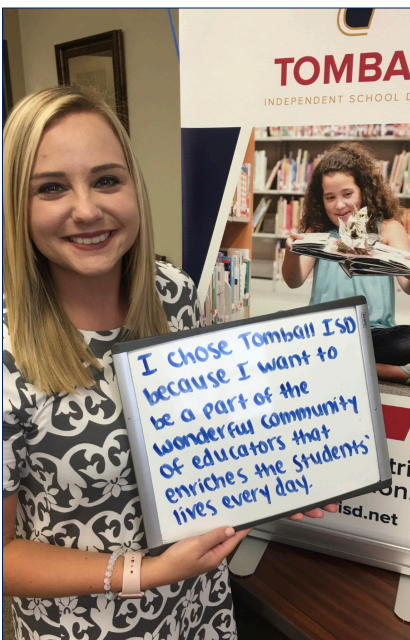 TOMBA
INDEPENDENT SCHOOL D
I chose Tomball ISD
because I want to
be a part of the
wonderful community
of educators that
enriches the students'
lives every day.
tri
on
isd.net